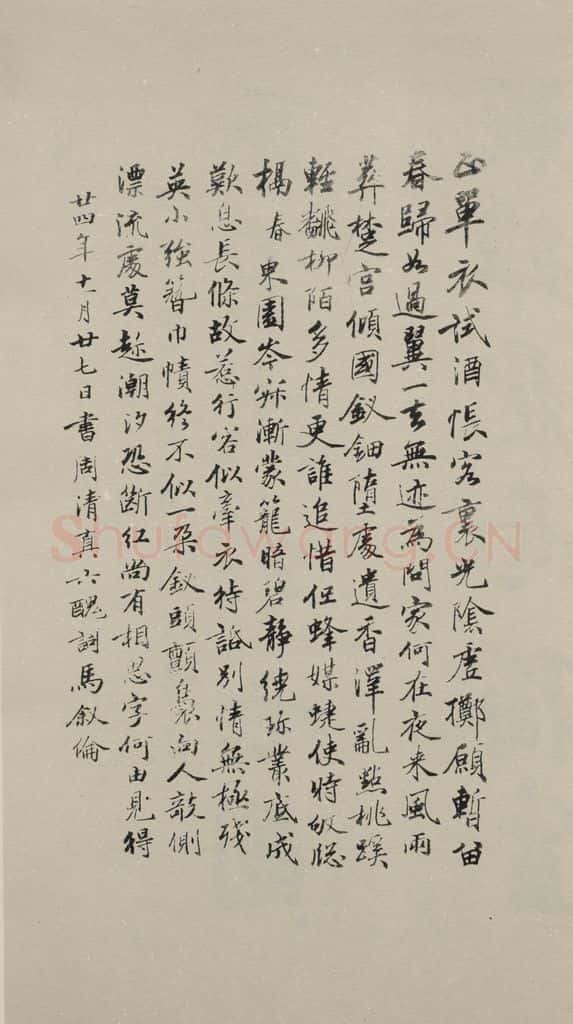 正單衣試酒悵客裏光陰虛擲願暫留
春歸如過翼一去無迹為問家何在夜來風雨
葬楚宮傾國釵鈿墮處遺香澤亂點桃蹊
輕翻柳陌多情更誰追惜但蜂媒蝶使時敂窗
槅春東園岑寂漸蒙籠暗碧靜繞珍叢底成
歎息長條故惹行客似牽衣待話別情無極殘
英小強簪巾幘終不似一朵釵頭顫裊向人敧側
漂流處莫趁潮汐恐斷紅尚有相思字何由見得
廿四年十一月廿七日書周清真六醜詞馬敘倫
Shufawang.CN